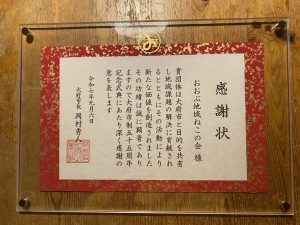 感謝状
おおぶ地域ねこの会 様
貴団体は大府市と目的を共有
し地域課題の解決に貢献され
るとともにその活動により
新たな価値を創造されました
その功績は誠に顕著であり
ますので大府市制五十五周年
記念式典にあたり深く感謝の
意を表します
令和七年九月六日
大府市長 岡村秀人